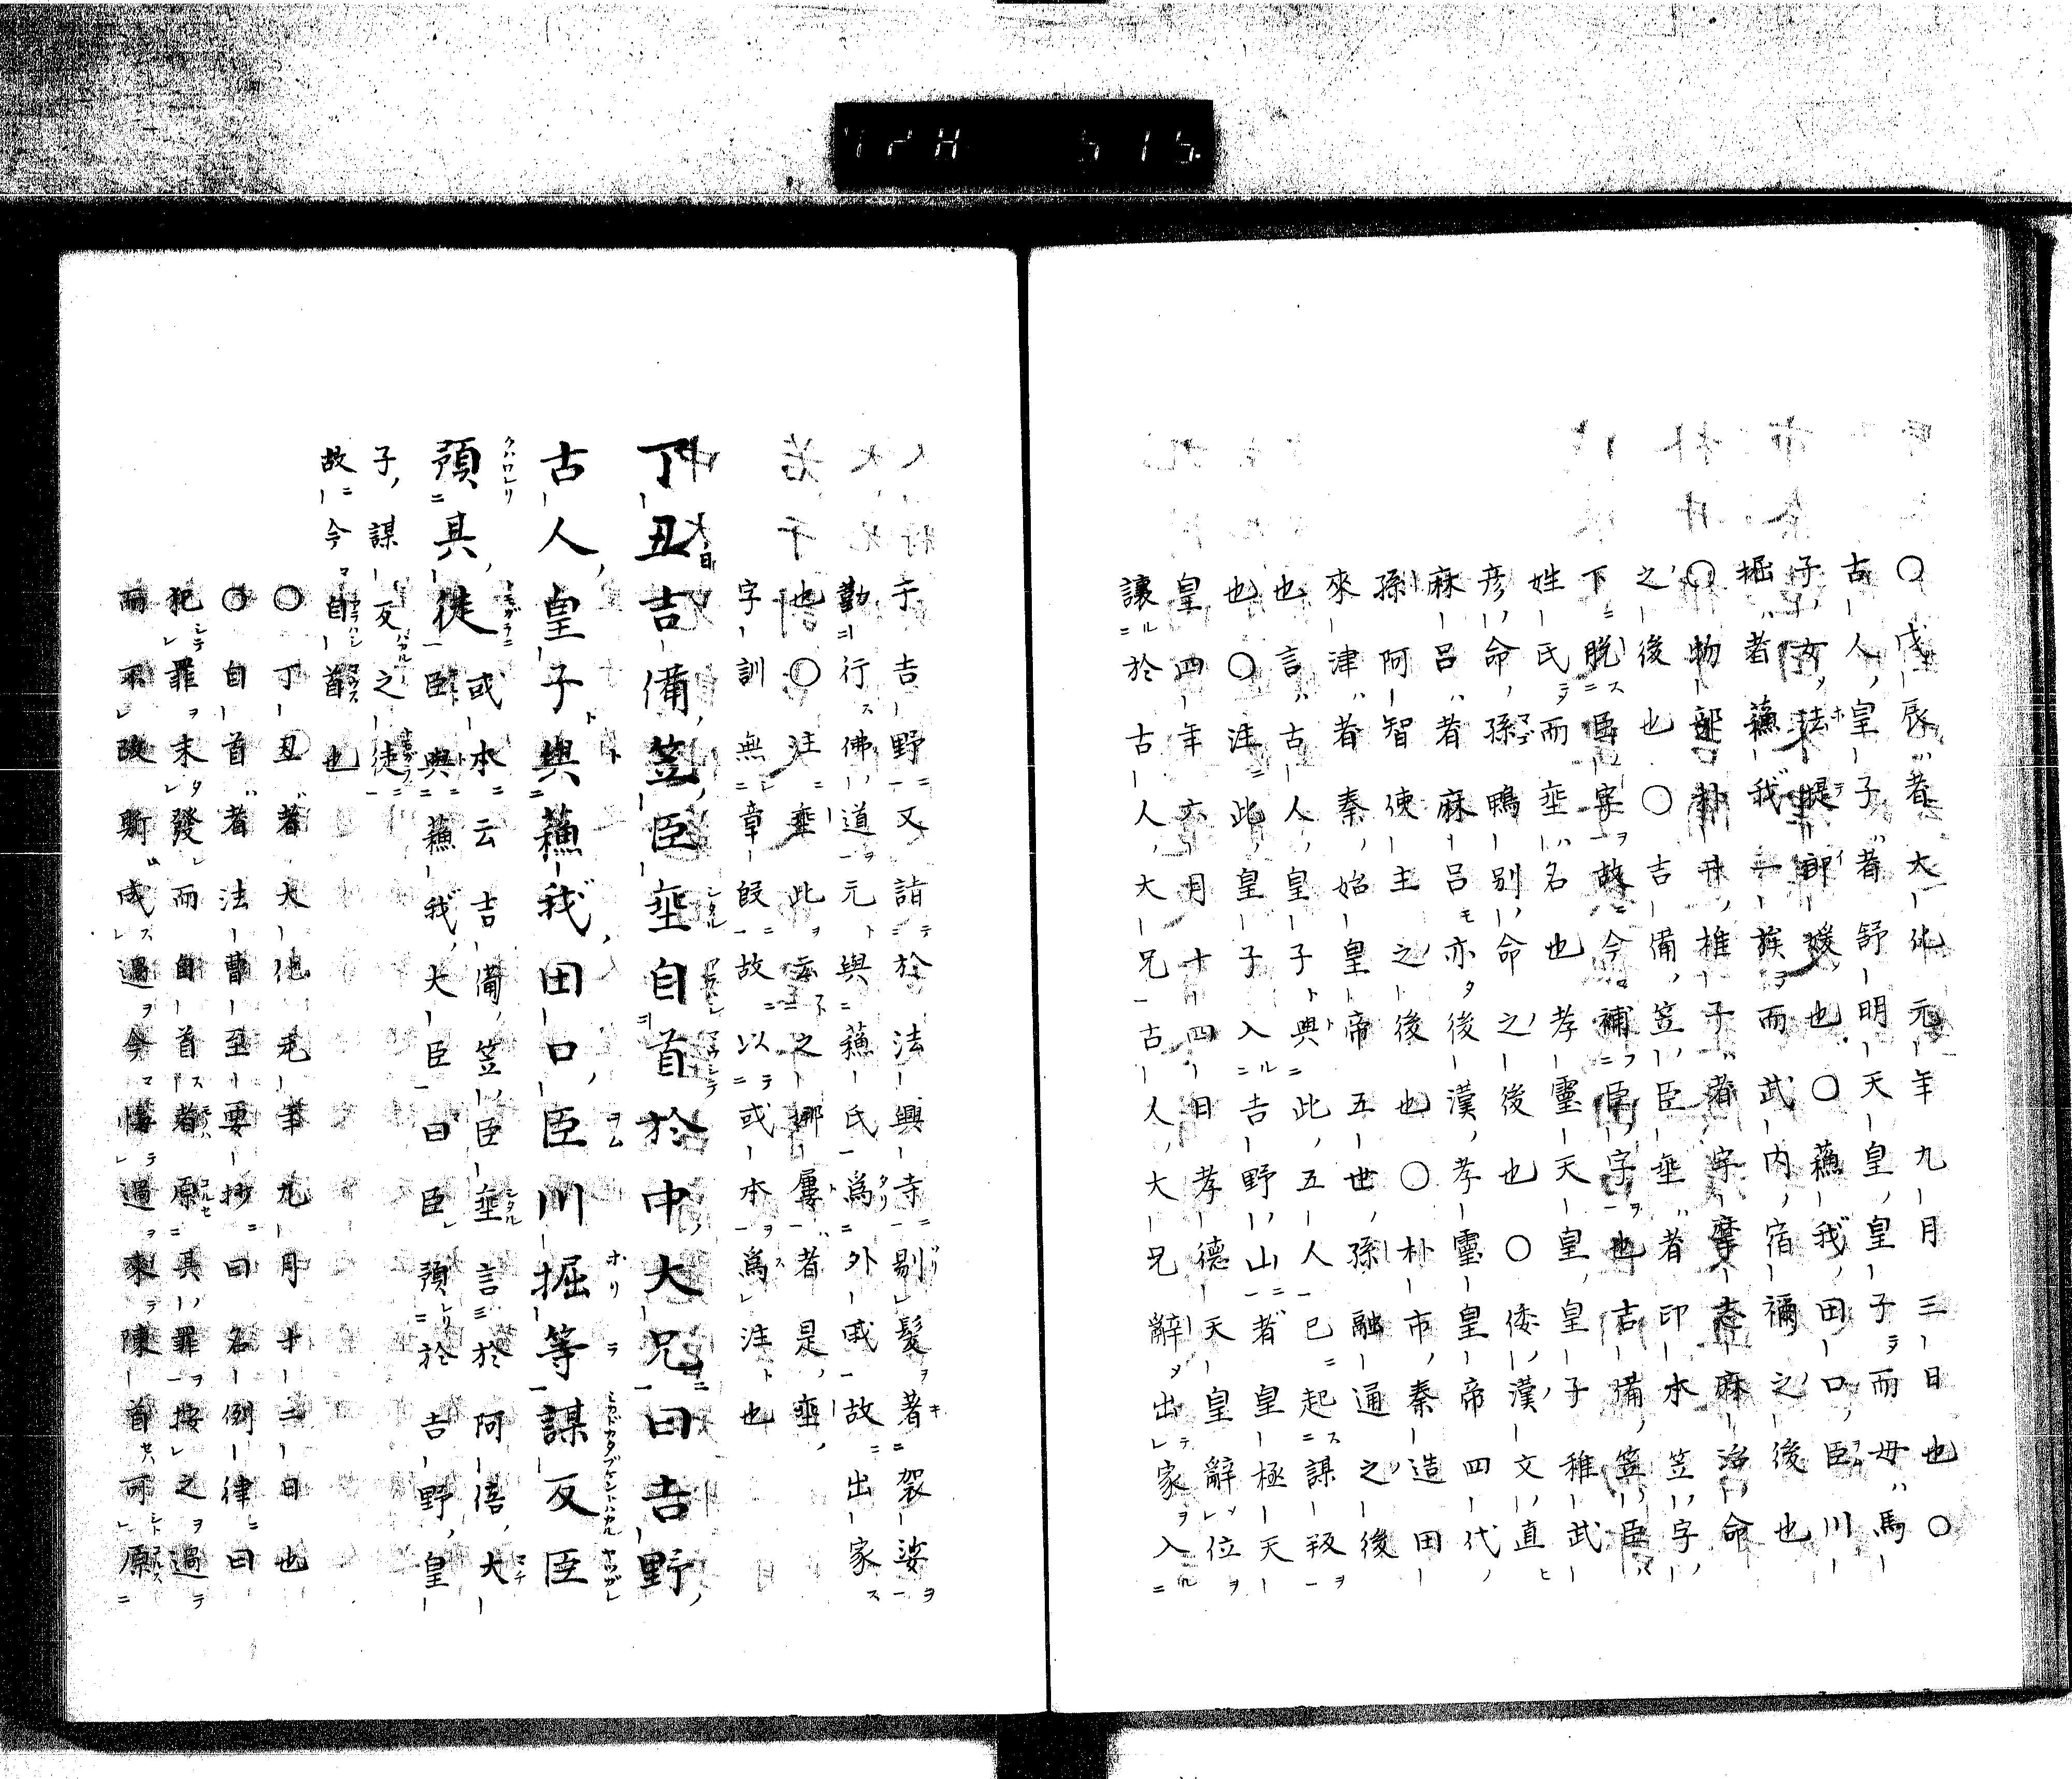 ○戊辰者大化元年九月三日也○
古人皇子者舒明天皇皇子而母馬
子女法提郎媛也○蘓我田口臣川
掘者蘓我一族而武内宿禰之後也
○物部朴井推子者宇摩志麻治命
之後也○吉備笠臣埀者印本笠字
下脱臣字故今補臣字也吉備笠臣
姓氏而埀名也孝霊天皇皇子稚武
彦命孫鴨別命之後也○倭漢文直
麻呂者麻呂亦後漢孝霊皇帝四代
孫阿智使主之後也○朴市秦造田
來津者秦始皇帝五世孫融通之後
也言古人皇子與此五人已起謀叛
也○注此皇子入吉野山者皇極天
皇四年六月十四日孝徳天皇辭位
讓於古人大兄古人大兄辭出家入
于吉野又詣於法興寺剔髮著袈娑
勤行佛道元與蘓氏爲外戚故出家
也○注埀此云之娜屢者是埀
字訓無章段故以或本爲注也
丁丑吉備笠臣埀自首於中大兄曰吉野
古人皇子與蘓我田口臣川掘等謀反臣
預其徒或本云吉備笠臣埀言於阿倍大
臣與蘓我大臣曰臣預於吉野皇
子謀反之徒
故今自首也
○丁丑者大化元年九月十二日也
○自首者法曹至要抄曰名例律曰
犯罪未發而自首者原其罪按之過
而不改斯成過今悔過來陳首可原
72H 515